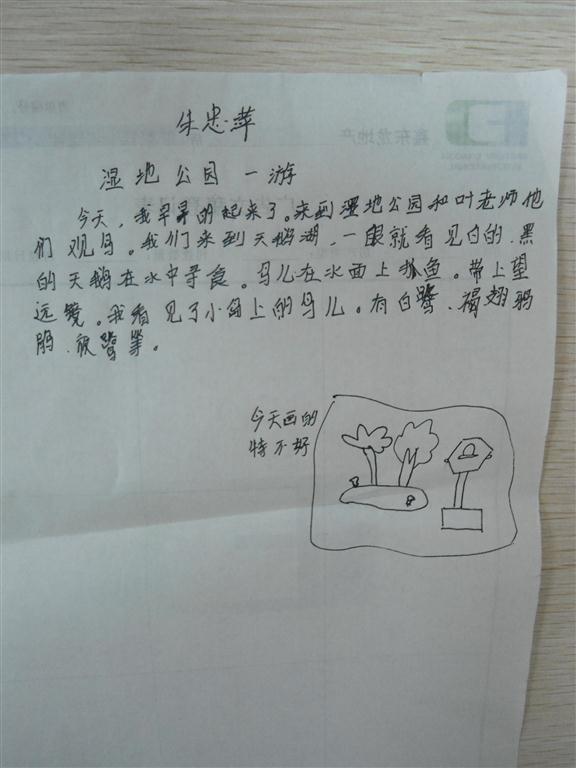 朱忠苹
湿地公园一游
今天，我早早的起来了。来到湿地公园和叶老师他
们观鸟。我们来到天鹅湖，一眼就看见白的、黑
的天鹅在水中寻食。鸟儿在水面上抓鱼。带上望
远镜。我看见了小岛上的鸟儿。有白鹭、褐翅鸦
鹃、夜鹭等。
今天画的
特不好
鑫东龙地产